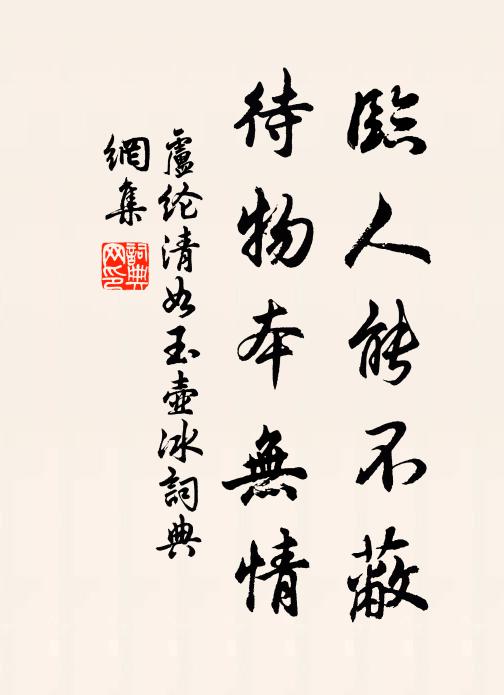 臨人能不蔽
待物本無情
盧纶清如玉壺冰詞典
網集
詞典
网印